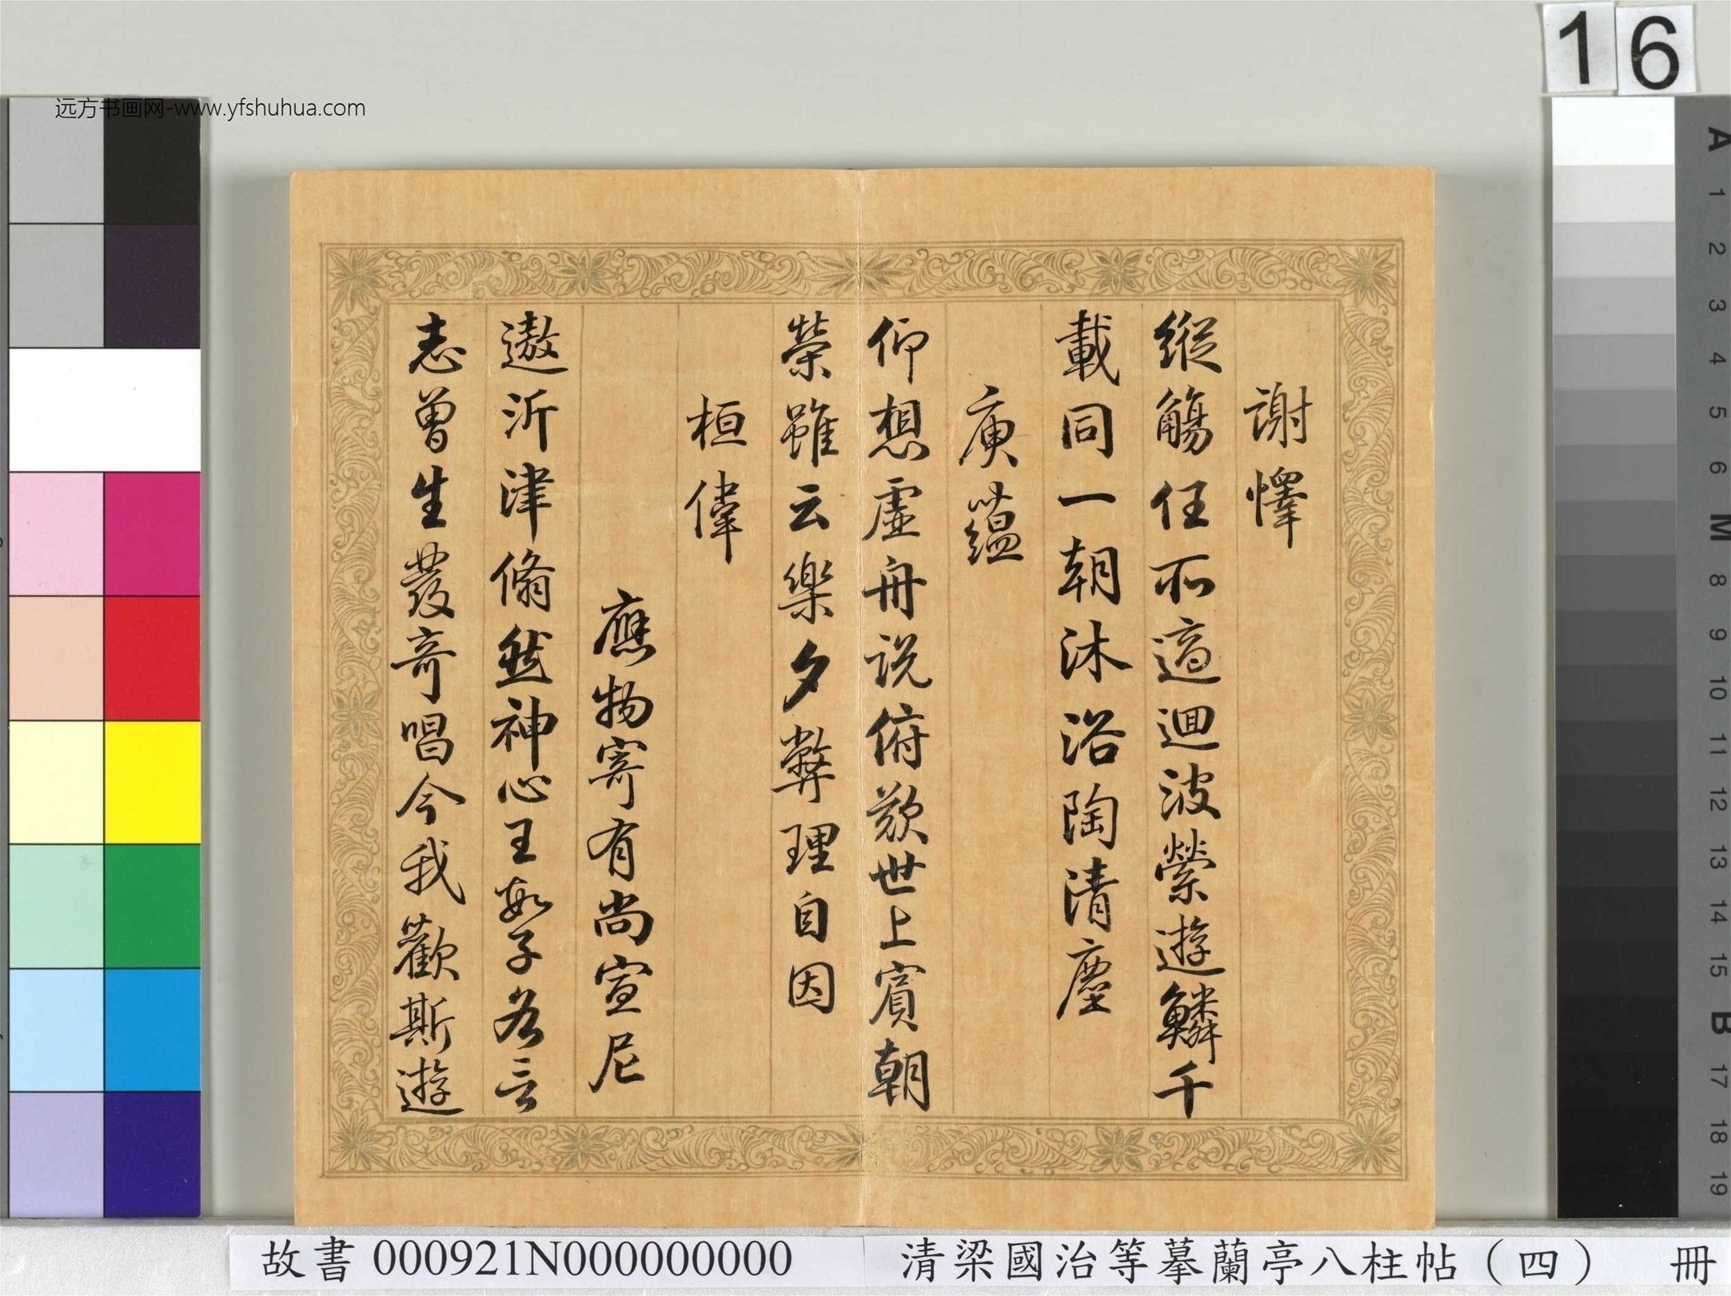 16
远方书画网-www.yfshuhua.com
謝懌
縱觴任所適迴波縈遊鱗千
載同一朝沐浴陶清塵
庾蘊
仰想虛舟說俯歎世上賓朝
榮雖云樂夕弊理自因
桓偉
應物寄有尚宣尼
遨沂津翛然神心王數子各言
志曾生發奇唱今我歡斯遊
A
1
2
3
4
5
6
M
8
9
10
11
12
13
14
15
B
17
18
19
故書 000921N000000000
清梁國治等摹蘭亭八柱帖（四） 冊